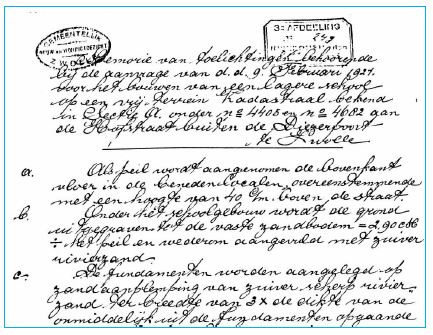 GEMEENTELIJK
BOUW- EN WONINGTOEZICHT
ZWOLLE
3e AFDEELING
No 249
Memorie van toelichtingen behoorende
bij de aanvrage van d.d. 9. Februari 1921.
voor het bouwen van een Lagere school
op een vrij terrein Kadastraal bekend
in Sectie A. onder no 4405 en no 4682 aan
de Hoopstraat buiten de Diezerpoort
te Zwolle
a. Als peil wordt aangenomen de bovenkant
vloer in de benedenlocalen, overeenstemmende
met een hoogte van 40 c/m. boven de straat.
b. Onder het schoolgebouw wordt de grond
uitgegraven tot de vaste zandbodem = 2,90
÷ het peil en wederom aangevuld met zuiver
rivierzand.
c. De fundamenten worden aangelegd op
zandaanplemping van zuiver scherp rivier-
zand. ter breedte van 3 x de dikte van de
onmiddelijk uit de fundamenten opgaande